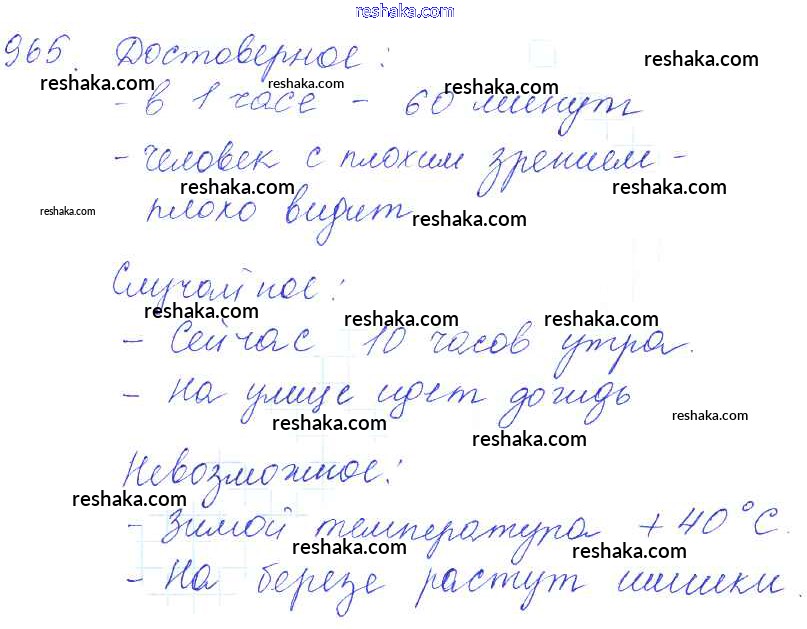 reshaka.com
965. Достоверное:
reshaka.com reshaka.com reshaka.com reshaka.com
- в 1 часе - 60 минут
- человек с плохим зрением -
reshaka.com reshaka.com
плохо видит
reshaka.com reshaka.com
Случайное:
reshaka.com reshaka.com reshaka.com
- Сейчас 10 часов утра.
- На улице идет дождь
reshaka.com reshaka.com reshaka.com
Невозможное:
reshaka.com reshaka.com
- Зимой температура +40°C.
reshaka.com reshaka.com
- На березе растут шишки.